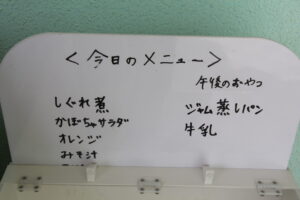 ＜今日のメニュー＞
午後のおやつ
しぐれ煮
ジャム蒸しパン
かぼちゃサラダ
牛乳
オレンジ
みそ汁